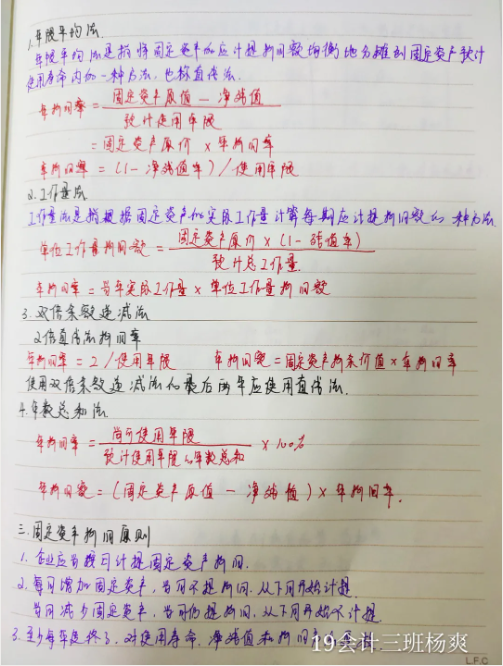 1.年限平均法
年限平均法是指将固定资产的应计提折旧额均衡地分摊到固定资产预计
使用寿命内的一种方法,也称直线法.
年折旧率=固定资产原值-净残值
预计使用年限
=固定资产原价×年折旧率
年折旧率=(1-净残值率)/使用年限
2.工作量法
工作量法是指根据固定资产的实际工作量计算每期应计提折旧额的一种方法
单位工作量折旧额=固定资产原价×(1-残值率)
预计总工作量
年折旧率=当年实际工作量×单位工作量折旧额
3.双倍余额递减法
2倍直线法折旧率
年折旧率=2/使用年限 年折旧额=固定资产期末价值×年折旧率
使用双倍余额递减法的最后两年应使用直线法.
4.年数总和法
年折旧率=尚可使用年限×100%
预计使用年限的年数总和
年折旧额=(固定资产原值-净残值)×年折旧率.
三.固定资产折旧原则
1.企业应当按月计提固定资产折旧.
2.每月增加固定资产,当月不提折旧.从下月开始计提.
当月减少固定资产,当月仍提折旧,从下月开始不计提
3.至少每年年终了.对使用寿命,净残值和折旧
19会计三班杨爽
L.F.C.